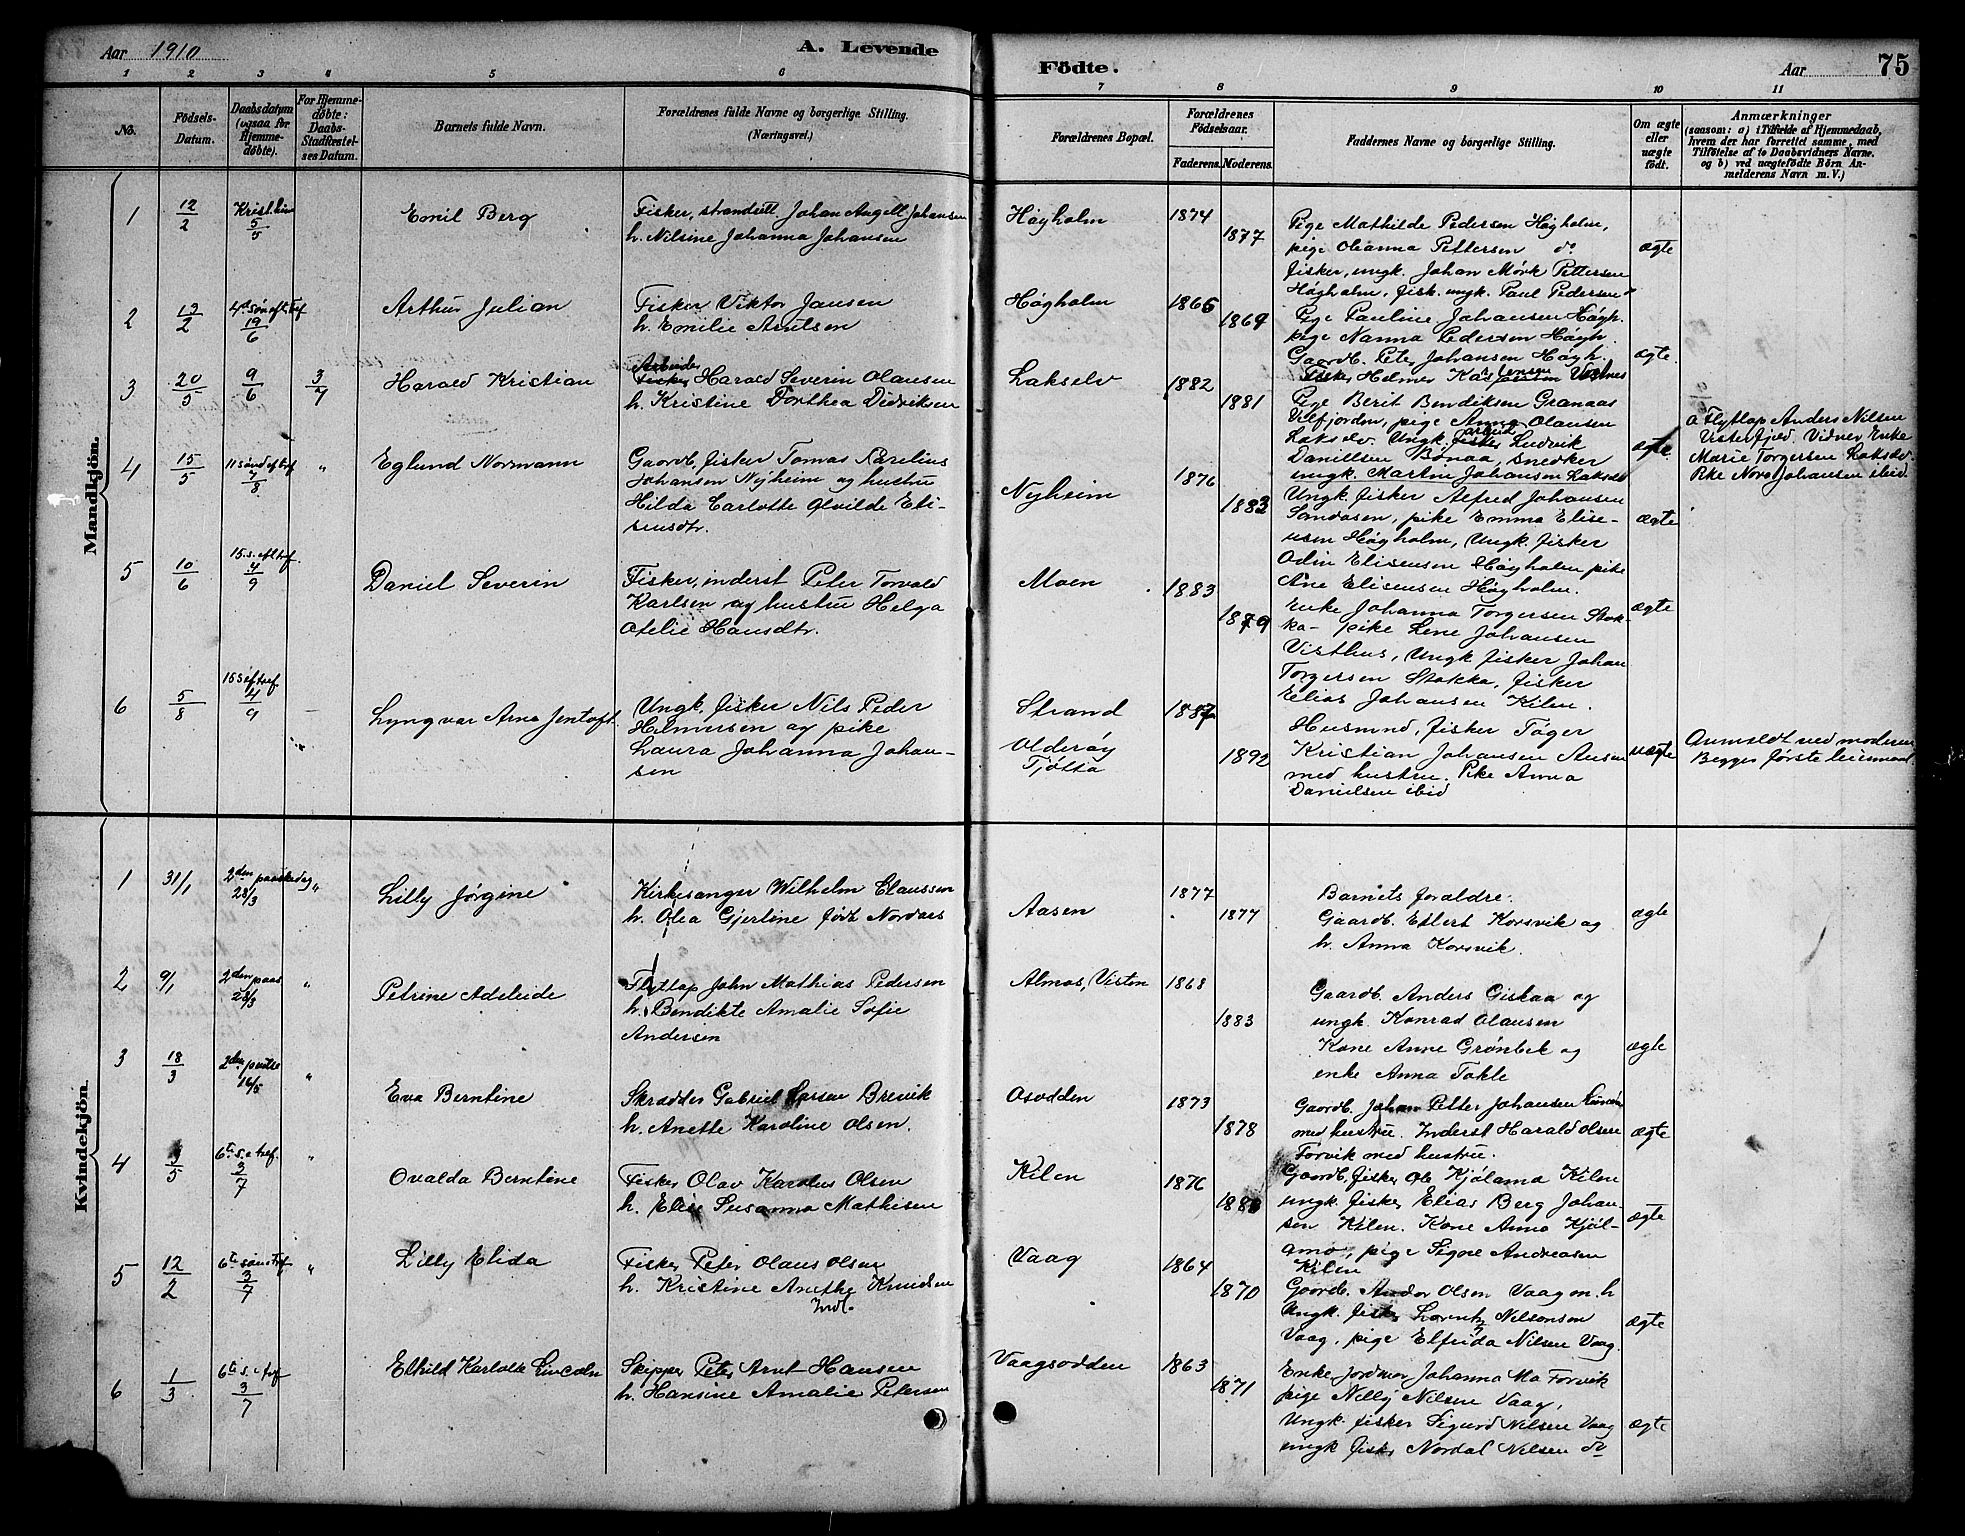 Aar 1910
A. Levende
Födte.
Aar
75
1 2 3 4 5 6 7 8 9 10 11
No.
Födsels-
Datum.
Daabsdatum
(ogsaa for
Hjemme-
döbte).
For Hjemme-
döbte:
Daabs-
Stadfæstel-
ses Datum.
Barnets fulde Navn.
Forældrenes fulde Navne og borgerlige Stilling.
(Næringsvei.)
Forældrenes Bopæl.
Forældrenes
Födselsaar.
Faderens. Moderens.
Faddernes Navne og borgerlige Stilling.
Om ægte
eller
uægte
födt.
Anmærkninger
(saasom: a) i Tilfælde af Hjemmedaab,
hvem der har forrettet samme, med
Tilföielse af to Daabsvidners Navne.
og b) ved uægtefödte Börn An-
melderens Navn m. V.)
Mandkjön.
1 12/2 5/5 Emil Berg
Fisker, strandsitt. Johan Angell Johansen
h. Nilsine Johanna Johansen
Høyholm 1874 1877
Pige Mathilde Pedersen Høyholm,
pige Oleanna Pettersen do
fisker, ungk. Johan Mørk Pettersen
Høyholm, fisk. ungk. Paul Pedersen
ægte
2 13/2 4de søn eft. tref 19/6 Arthur Julian
Fisker Viktor Jansen
h. Emilie Arntsen
Høyholm 1866 1869
Pige Pauline Johansen Høyh.
pige Nanna Pedersen Høyh.
Gaardb. Peter Johansen Høyh.
Fisker Helmer
ægte
3 20/5 9/6 3/7 Harald Kristian
Arbeider
Fisker Harald Severin Olausen
h. Kristine Dorthea Didriksen
Lakselv 1882 1881
Pige Berit Bendiksen Granaas
Velfjorden, pige Anna Olausen
Lakselv. Ungk. fisker Ludvik
Daniellsen Bønaa, snedker
ungk. Martin Johansen Lakselv
ægte
a Flytlap Anders Nilsen
Vistenfjord. Vidner Enke
Marie Torgersen Lakselv
Pke Nora Johansen ibid.
4 15/5 11 sønd eft tref 7/8 " Eglund Normann
Gaardb. fisker Tomas Karelius
Johansen Nyheim og hustru
Hilda Carlotte Alvilde Eli-
sensdtr.
Nyheim 1876 1883
Ungk. fisker Alfred Johansen
Sandaasen, pike Emma Elise-
usen Høyholm, Ungk. fisker
Odin Eliseusen Høyholm pike
Ane Eliseusen Høyholm.
ægte
5 10/6 15. s. eft tref. 4/9 Daniel Severin
Fisker, inderst Peter Torvald
Karlsen og hustru Helga
Ofelie Hansdtr.
Moen 1883 1879
Enke Johanna Torgersen Stok-
ka- pike Lene Johansen
Visthus, Ungk fisker Johan
Torgersen Stokka, fisker
Elias Johansen Kilen.
ægte
6 5/8 15 S eft tref 4/9 - Lyngvar Arno Jentoft
Ungk. fisker Nils Peder
Helmersen og pike
Laura Johanna Johan-
sen
Strand
Olderøy
Tjøtta
1887 1892
Husmnd, fisker Tøger
Kristian Johansen Aasen
med hustru. Pike Anna
Danielsen ibid
uægte
Anmeldt ved moderen
Begges første leiermaal
Kvindekjön.
1 31/1 2den paaskedag 28/3 " Lilly Jørgine
Kirkesanger Wilhelm Claussen
h. Olea Gjertine født Nordnæs
Aasen 1877 1877
Barnets forældre.
Gaardb. Edlert Korsvik og
h. Anna Korsvik.
ægte
2 9/1 2den paas 28/3 " Petrine Adeleide
Flytlap John Mathias Pedersen
h. Bendikte Amalie Sofie
Andersen
Almos, Visten 1868 1883
Gaardb. Anders Giskaa og
ungk. Konrad Olausen
Kone Anne Grønbek og
enke Anna Tokle
ægte
3 18/3 2den pintse 16/5 " Eva Berntine
Skrædder Gabriel Larsen Brevik
h. Anette Karoline Olsen.
Osodden 1873 1878
Gaardb. Johan Petter Johansen
med hustru. Inderst Harald Olsen
Forvik med hustru.
ægte
4 3/5 6te s. e tref. 3/7 " Ovalda Berntine
Fisker Olav Karolius Olsen
h. Elise Susanna Mathisen
Kilen 1876
Gaardb. fisker Ole Kjølamo Kilen
ungk. fisker Elias Berg Johan-
sen Kilen. Kone Anna Kjøl-
amo, pige Signe Andreasen
Kilen
ægte
5 12/2 6te søn e tref 3/7 " Lilly Elida
Fisker Peter Olaus Olsen
h. Kristine Anethe Knudsen
Indl.
Vaag 1864 1870
Gaardb. Andor Olsen Vaag m. h
Ungk. fisker Lorentz Nilsensen
Vaag, pige Elfrida Nilsen Vaag.
ægte
6 1/3 6te s. e tref 3/7 Ethild Karlotte Lincoln
Skipper Peter Arnt Hansen
h. Hansine Amalie Petersen
Vaagsodden 1863 1871
Enke Jordmor Johanna Ma Forvik
pige Nelly Nilsen Vaag,
Ungk. fisker Sigurd Nilsen Vaag
ungk fisker Nordal Nilsen do
ægte